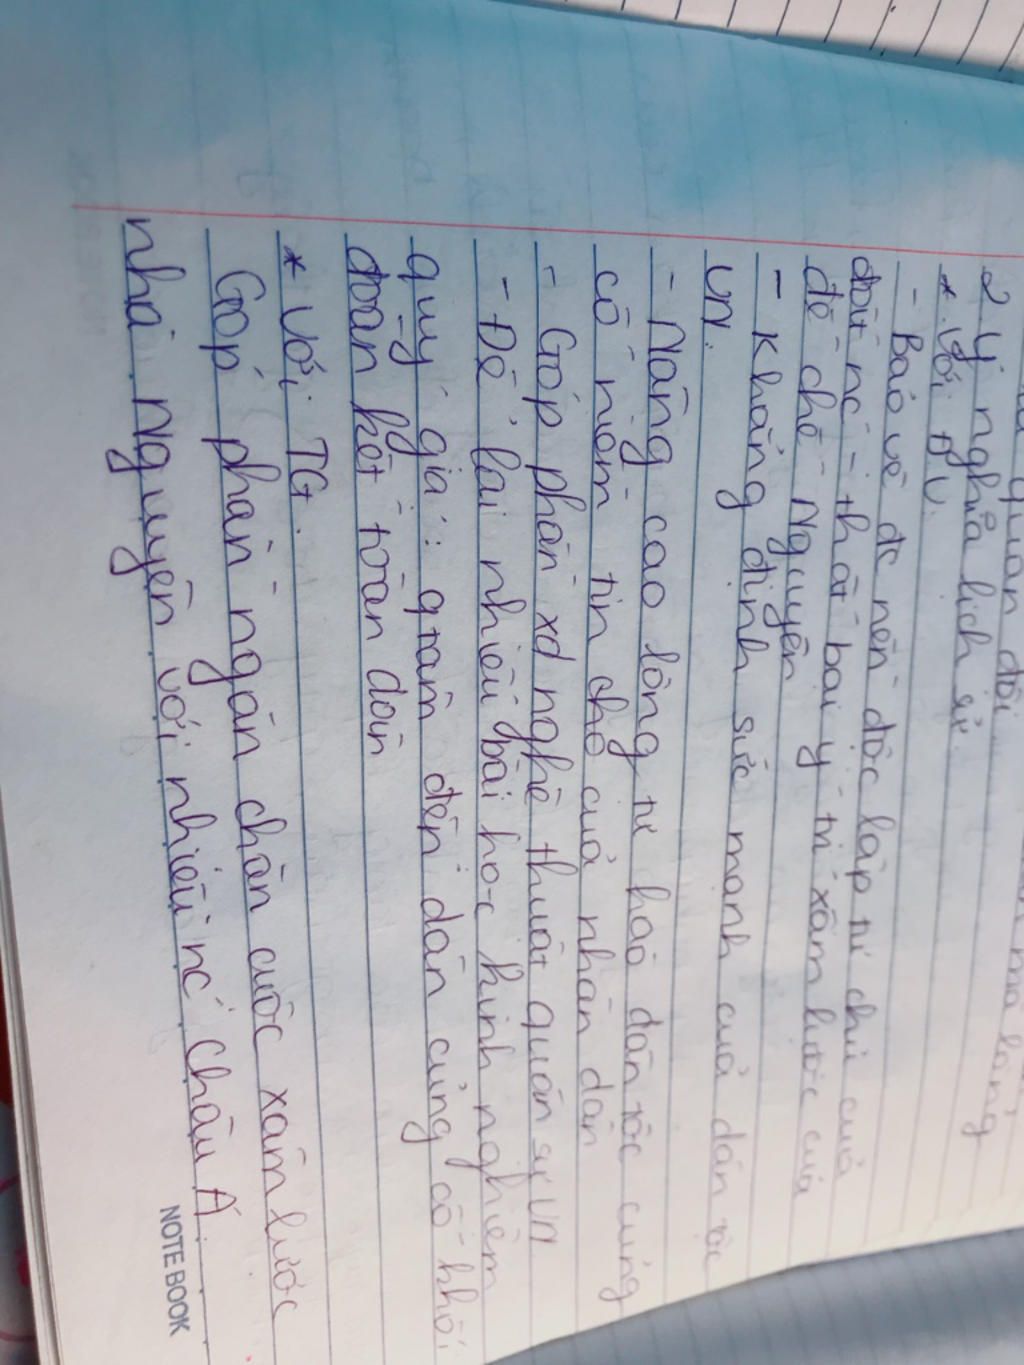 quân đội
2 Ý nghĩa lịch sử
* Với ĐV.
- Bảo vệ đc nền độc lập tự chủ của
đất nc - thất bại ý trí xâm lược của
đế chế Nguyên
- Khẳng định sức mạnh của dân tộc
VN.
- Nâng cao lòng tự hào dân tộc củng
cố niềm tin cho của nhân dân
- Góp phần xd nghệ thuật quân sự VN
- Để lại nhiều bài học kinh nghiệm
quý giá: quan tâm đến dân củng cố khối
đoàn kết toàn dân
* Với TG.
Góp phần ngăn chặn cuộc xâm lược
nhà Nguyên với nhiều nc Châu Á.
NOTE BOOK